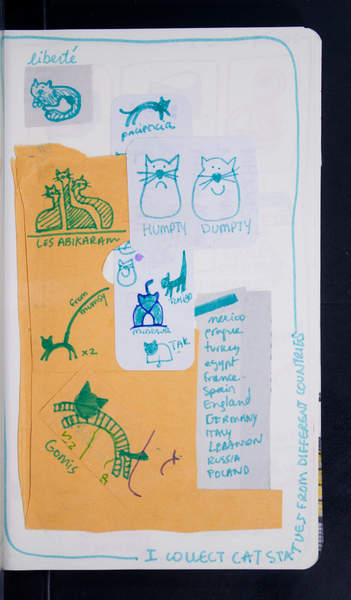 liberté
paciencia
HUMPTY DUMPTY
LES ABIKARAM
from mumsy
x2
TAK
GOMIS
mexico
prague
turkey
egypt
france
spain
England
GERMANY
ITALY
LEBANON
RUSSIA
POLAND
I COLLECT CAT STATUES FROM DIFFERENT COUNTRIES